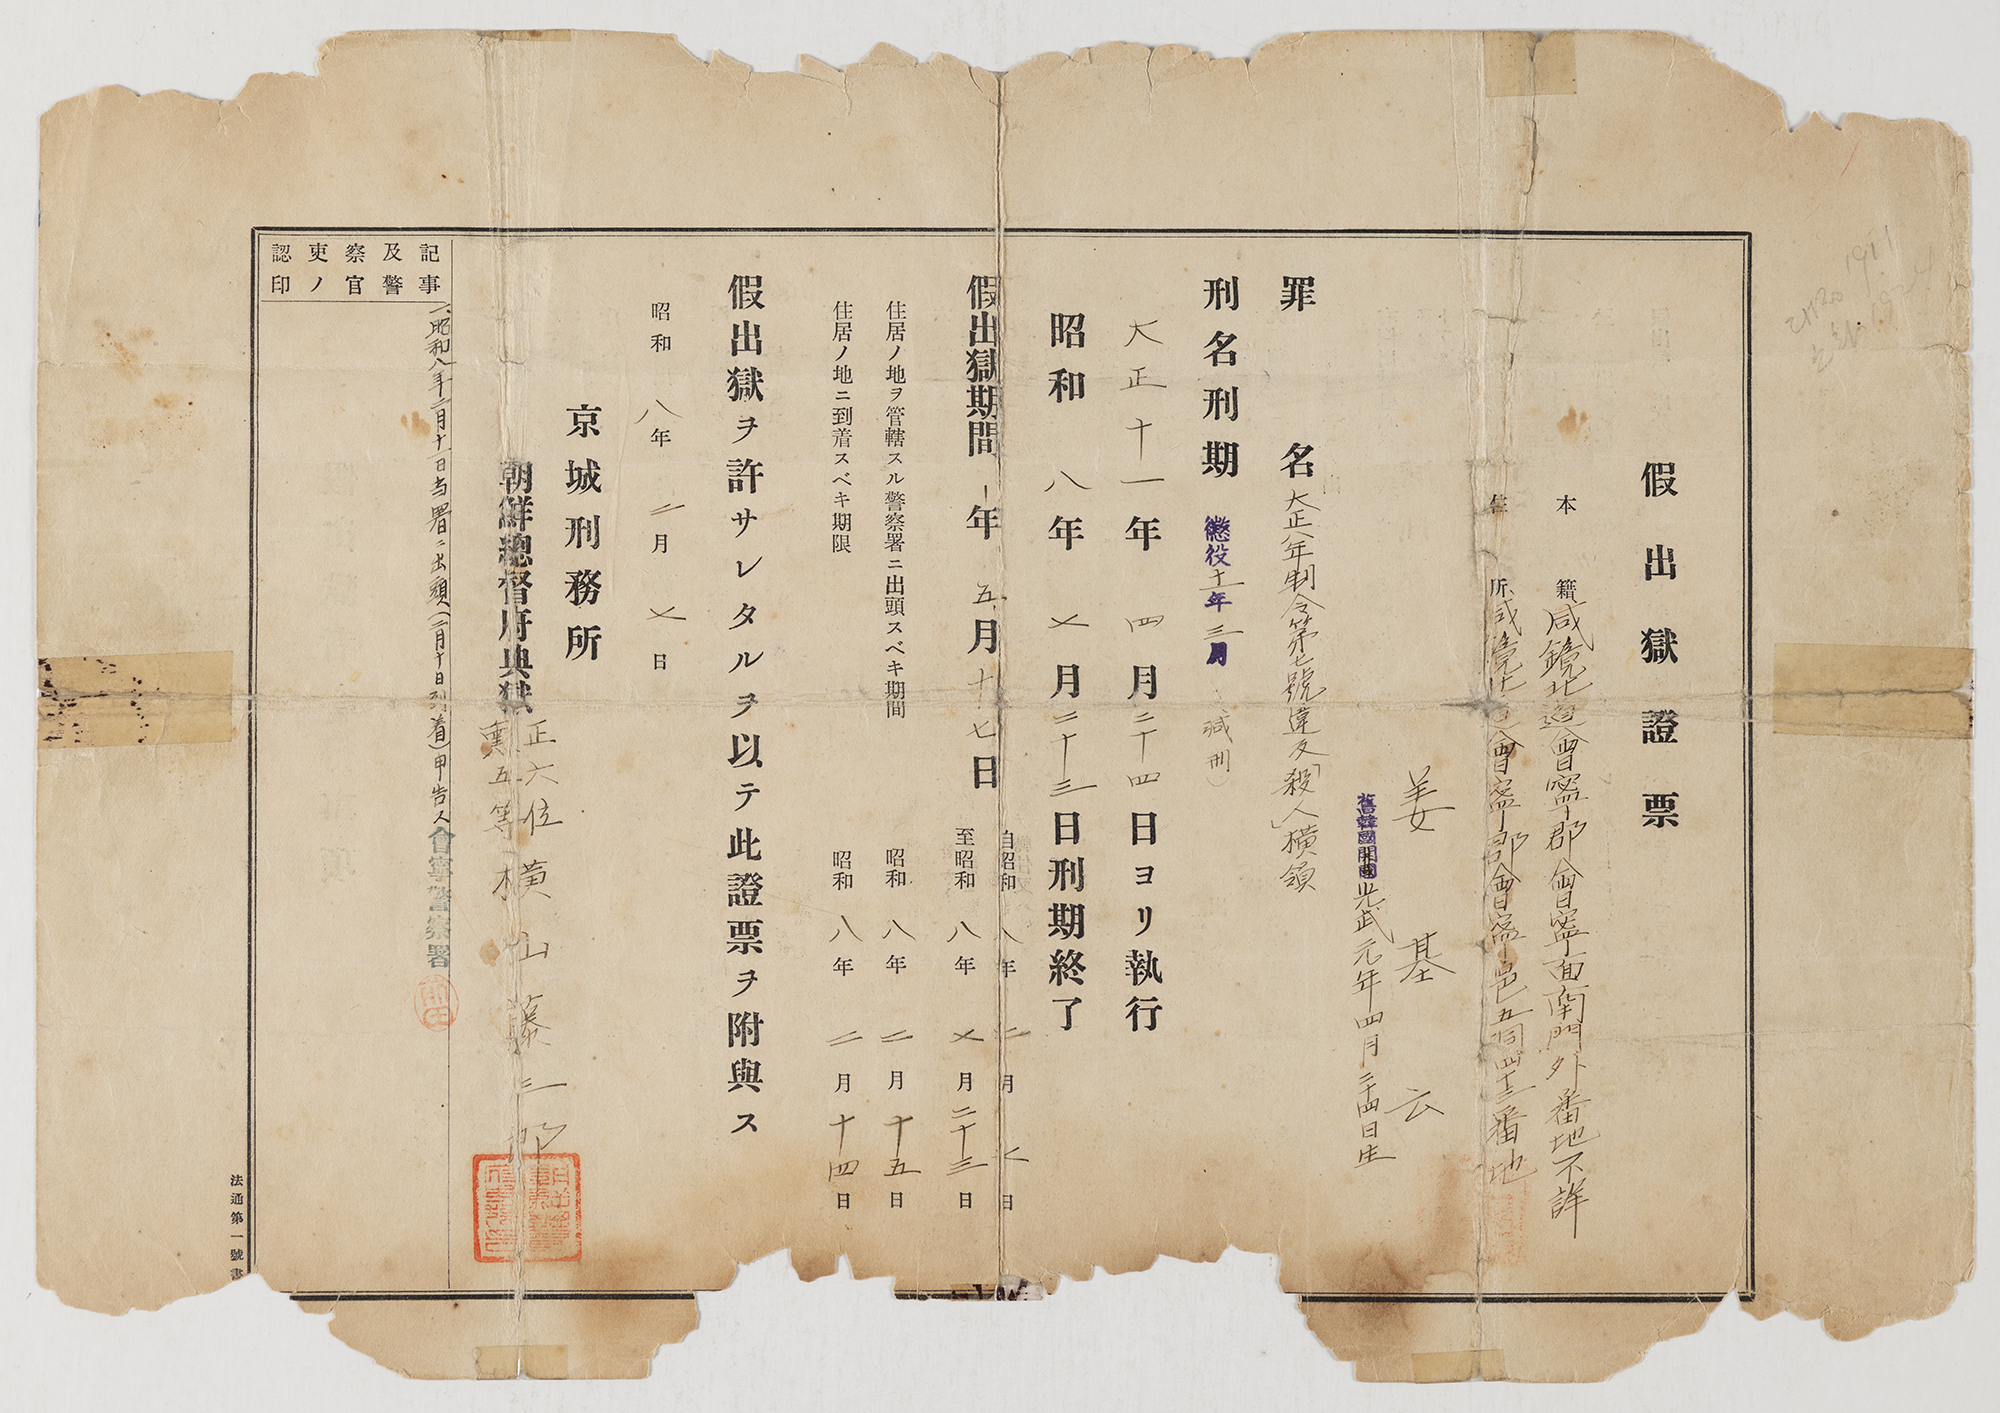 假出獄證票
本籍 咸鏡北道會寧郡會寧面南門外番地不詳
住所 咸鏡北道會寧郡會寧邑五洞四十三番地
姜基云
舊韓國開國光武元年四月二十四日生
罪名 大正八年制令第七號違反「殺人」橫領
刑名刑期 懲役十一年三月 (減刑)
大正十一年四月二十四日ヨリ執行
昭和八年七月二十三日刑期終了
假出獄期間 一年五月十七日
自昭和八年二月七日
至昭和八年七月二十三日
住居ノ地ヲ管轄スル警察署ニ出頭スベキ期間 昭和八年二月十五日
住居ノ地ニ到着スベキ期限 昭和八年二月十四日
假出獄ヲ許サレタルヲ以テ此證票ヲ附與ス
昭和八年二月七日
京城刑務所
朝鮮總督府典獄 正六位勳五等 橫山藤三郎
記事及警察官吏ノ認印
一、昭和八年二月十一日当署ニ出頭(二月十日到着)申告ス 會寧警察署
法通第一號書